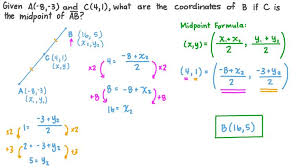 Given A(-8,-3) and C(4,1), what are the coordinates of B if C is
the midpoint of AB?
B (16,5)
(x₂,y₂)
C (4,1)
(x,y)
A(-8,-3)
(x₁,y₁)
4 = -8+x₂ / 2
×2 ×2
8 = -8+x₂
+8 +8
16 = x₂
1 = -3+y₂ / 2
×2 ×2
2 = -3+y₂
+3 +3
5 = y₂
Midpoint Formula:
(x,y) = (x₁+x₂ / 2, y₁+y₂ / 2)
(4,1) = (-8+x₂ / 2, -3+y₂ / 2)
B(16,5)